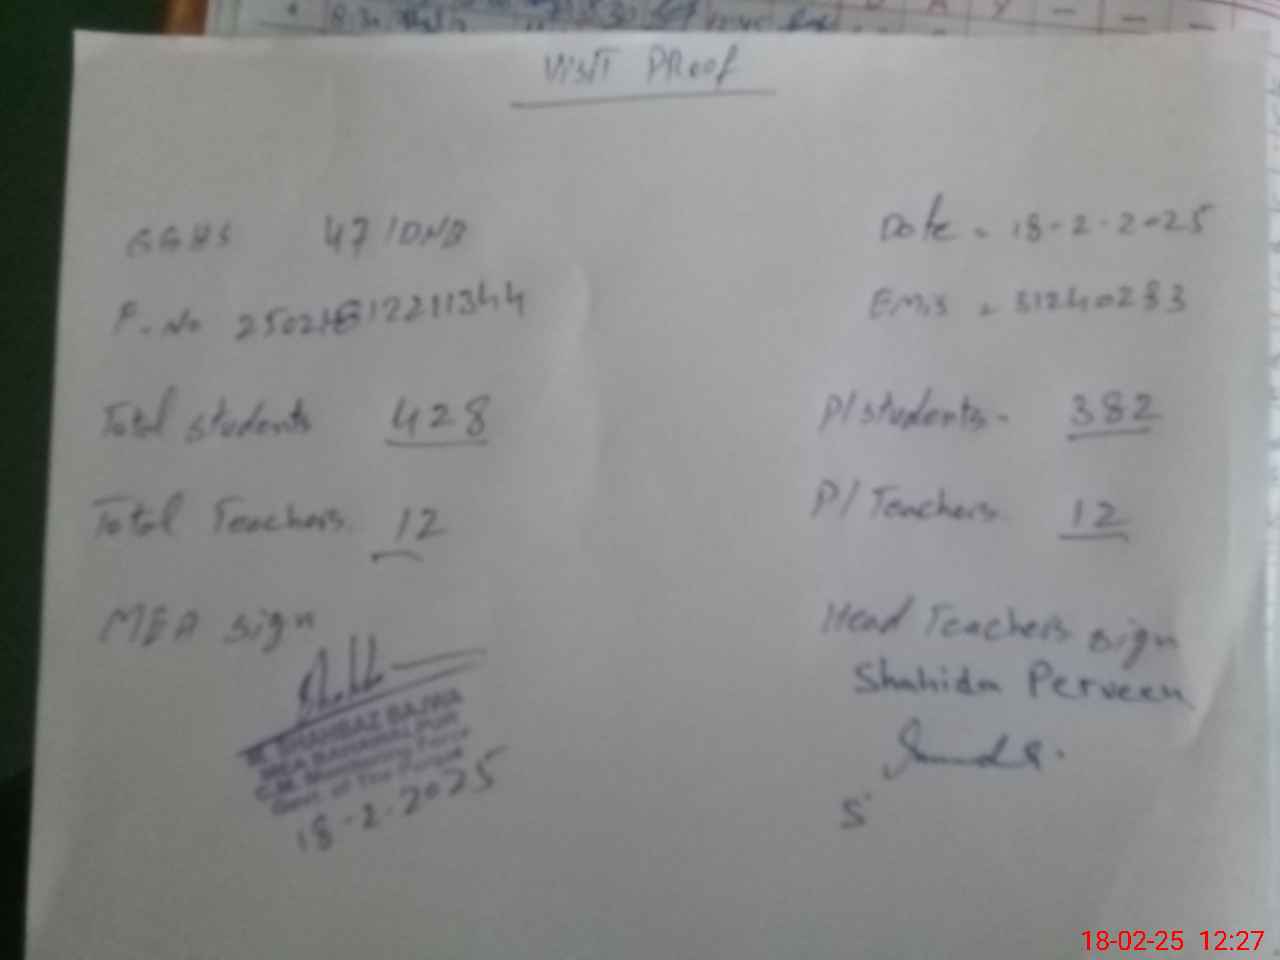 Visit Proof
GGHS 47/DNB Date = 18-2-2025
F. No 25021812211344 EMIS = 31240283
Total students 428 P/students - 382
Total Teachers. 12 P/Teachers. 12
MEA sign Head Teachers sign
Shahida Perveen
M. SHAHBAZ BAJWA
MEA BAHAWALPUR
C.M. Monitoring Force
Govt. of The Punjab
18-2-2025
S
18-02-25 12:27